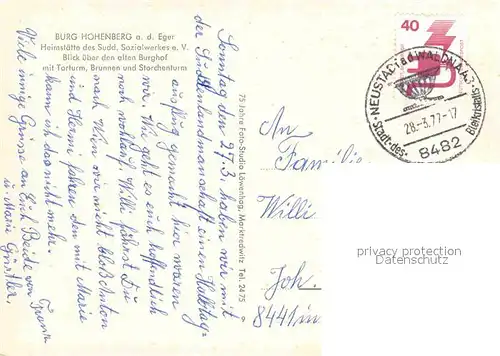 BURG HOHENBERG a. d. Eger
Heimstätte des Sudd. Sozialwerkes e. V.
Blick über den alten Burghof
mit Torturm, Brunnen und Storchenturm
75 Jahre Foto-Studio Löwenhag, Marktredwitz Tel. 2475
Sonntag den 27.3 haben wir mit
der Sudetenlandmannschaft einen Halbtag-
ausflug gemacht hier waren
wir. Wie geht es euch hoffendlich
noch wohlauf. Willi fährst Du
nach Wien wir nicht bloß Anton
und Hermi fahren den mit Marie
kann ich das nicht mehr.
Viele innige Grüsse an Euch Beide von Franz
u. Marie
40
NEUSTADT a d WALDNAAB
28.-3.77-17
8482
Stadt des Bleikristalls
An
Familie
Willi
Joh.
8441 in
privacy protection
Datenschutz